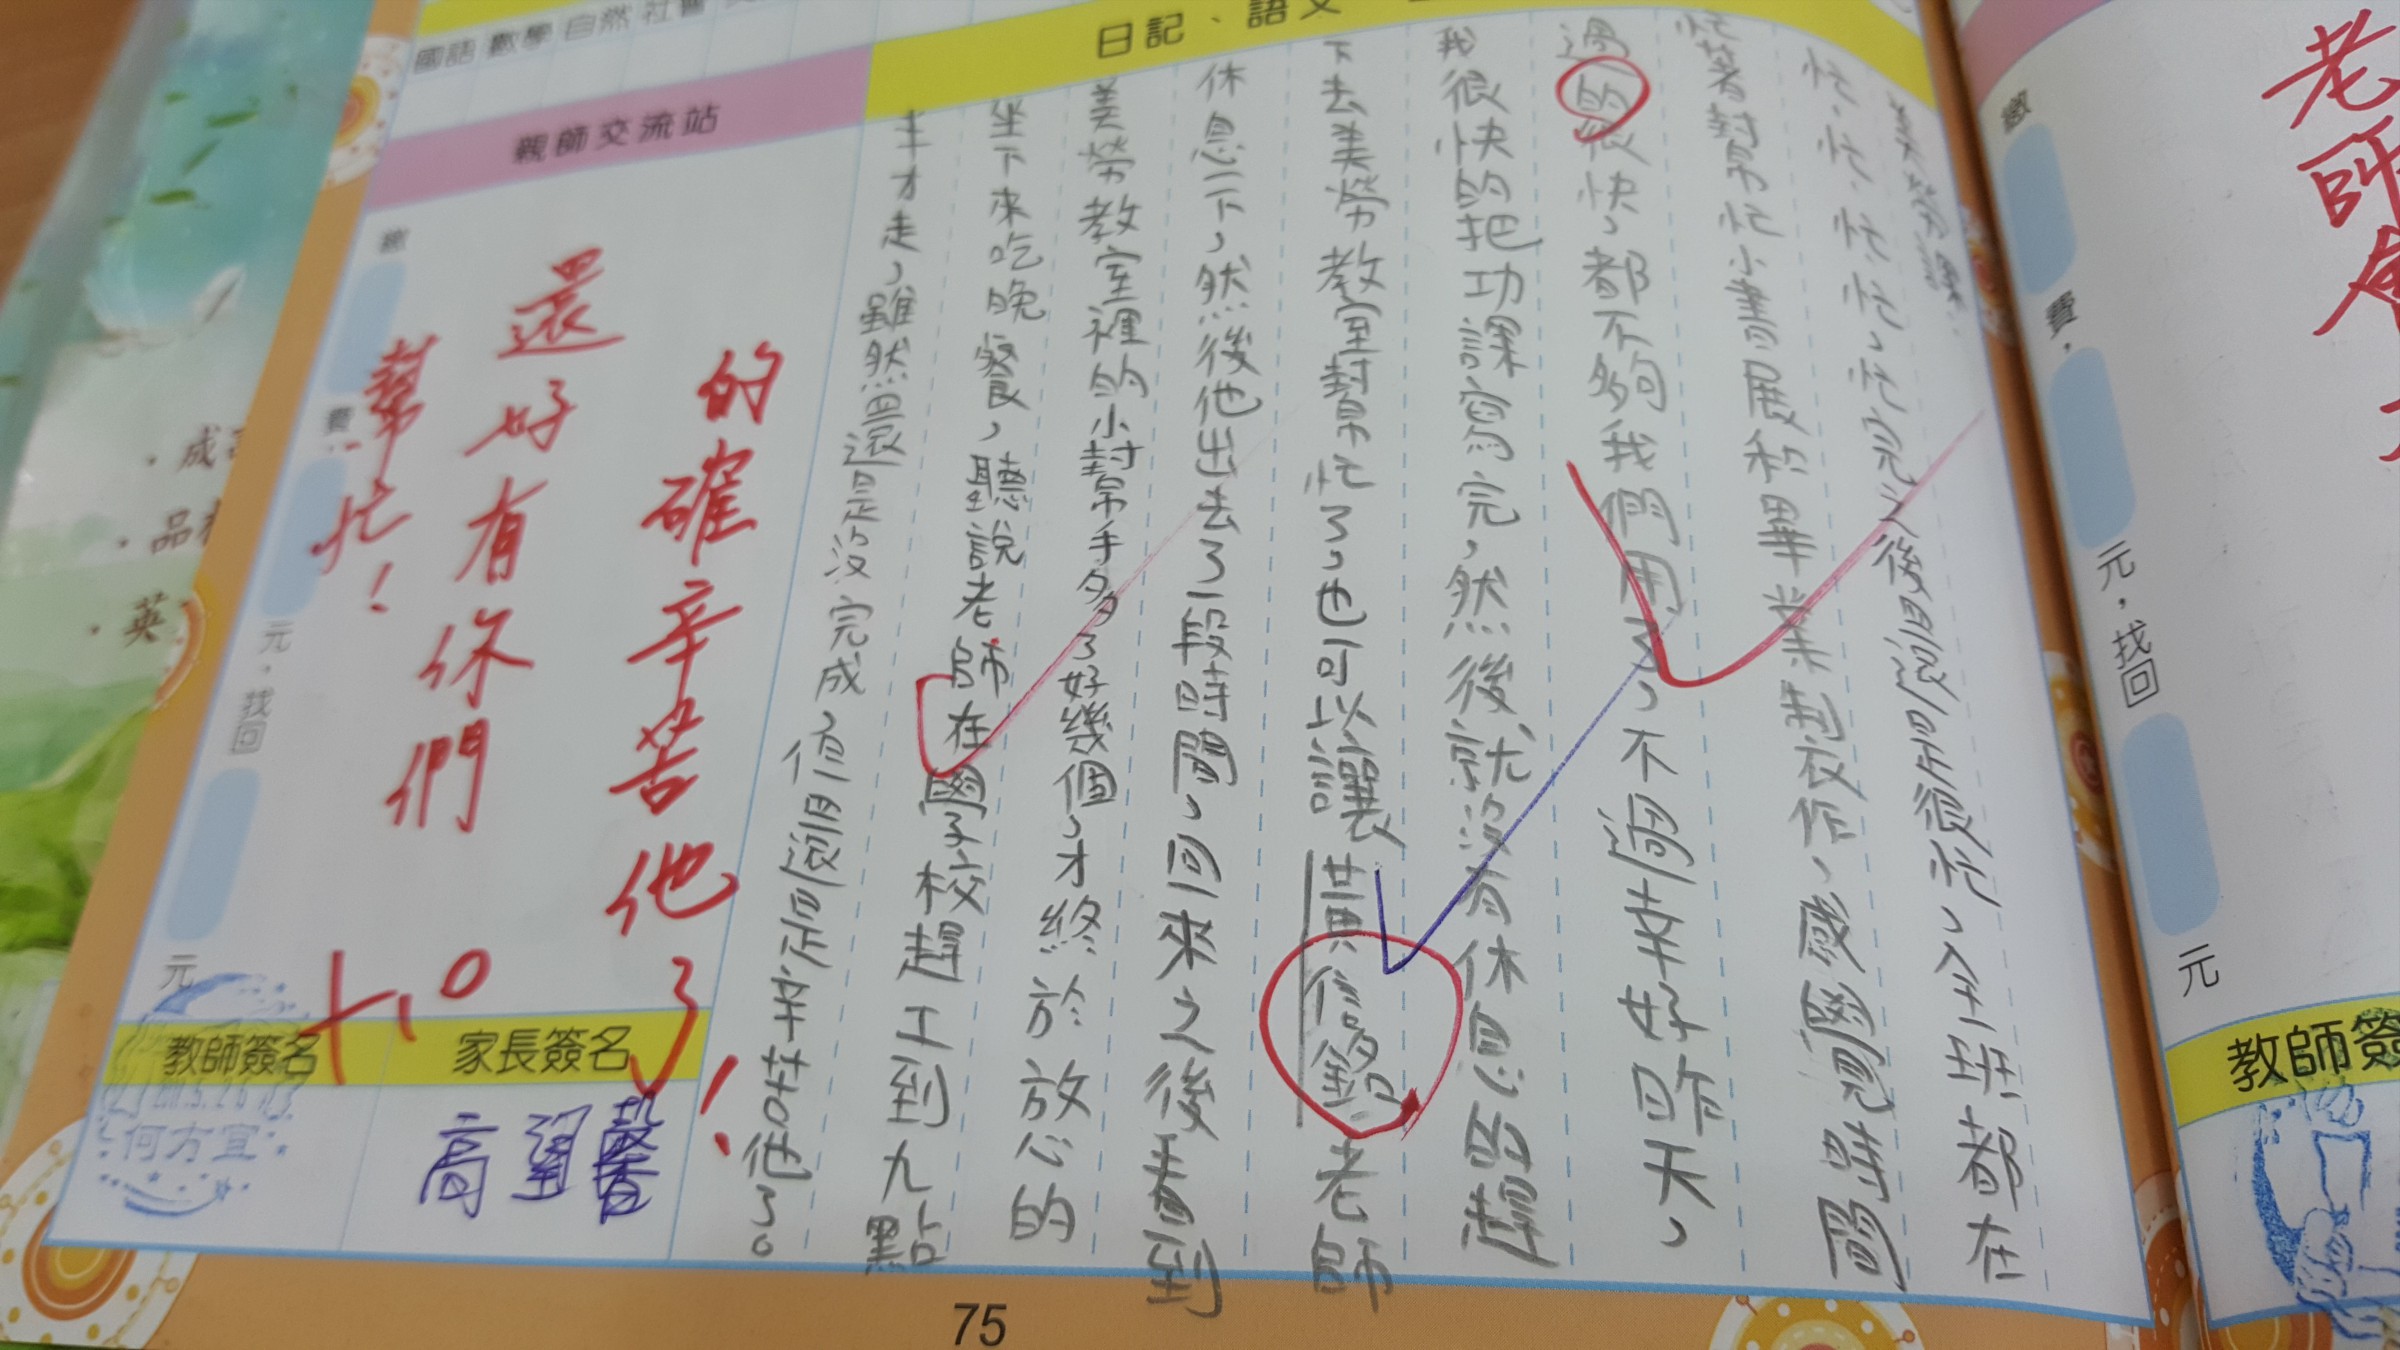 國語 數學 自然 社會
日記、語文
美勞課
忙,忙,忙,忙,忙完之後還是很忙,全班都在
忙著幫忙小書展和畢業制衣作,感覺時間
過的很快,都不夠我們用了,不過幸好昨天,
我很快的把功課寫完,然後就沒有休息的趕
下去美勞教室幫忙了,也可以讓黃信銘老師
休息一下,然後他出去了一段時間,回來之後看到
美勞教室裡的小幫手多了好幾個,才終於放心的
坐下來吃晚餐,聽說老師在學校趕工到九點
半才走,雖然還是沒完成,但還是辛苦他了。
親師交流站
的確辛苦他了!
還好有你們
幫忙!
繳 費, 元,找回 元
教師簽名
家長簽名
何方宜
75
老師會
繳 費, 元,找回 元
教師簽
成
品
英